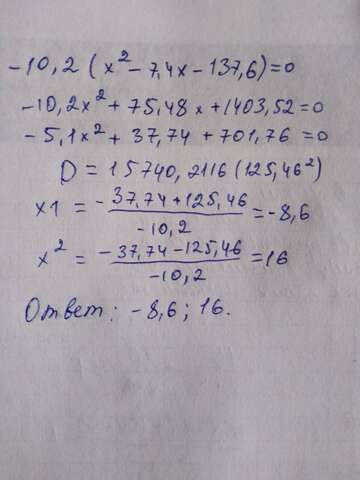 -10,2 (x² - 7,4x - 137,6) = 0
-10,2x² + 75,48x + 1403,52 = 0
-5,1x² + 37,74 + 701,76 = 0
D = 15740,2116 (125,46²)
x1 = \frac{-37,74 + 125,46}{-10,2} = -8,6
x² = \frac{-37,74 - 125,46}{-10,2} = 16
Ответ: -8,6; 16.